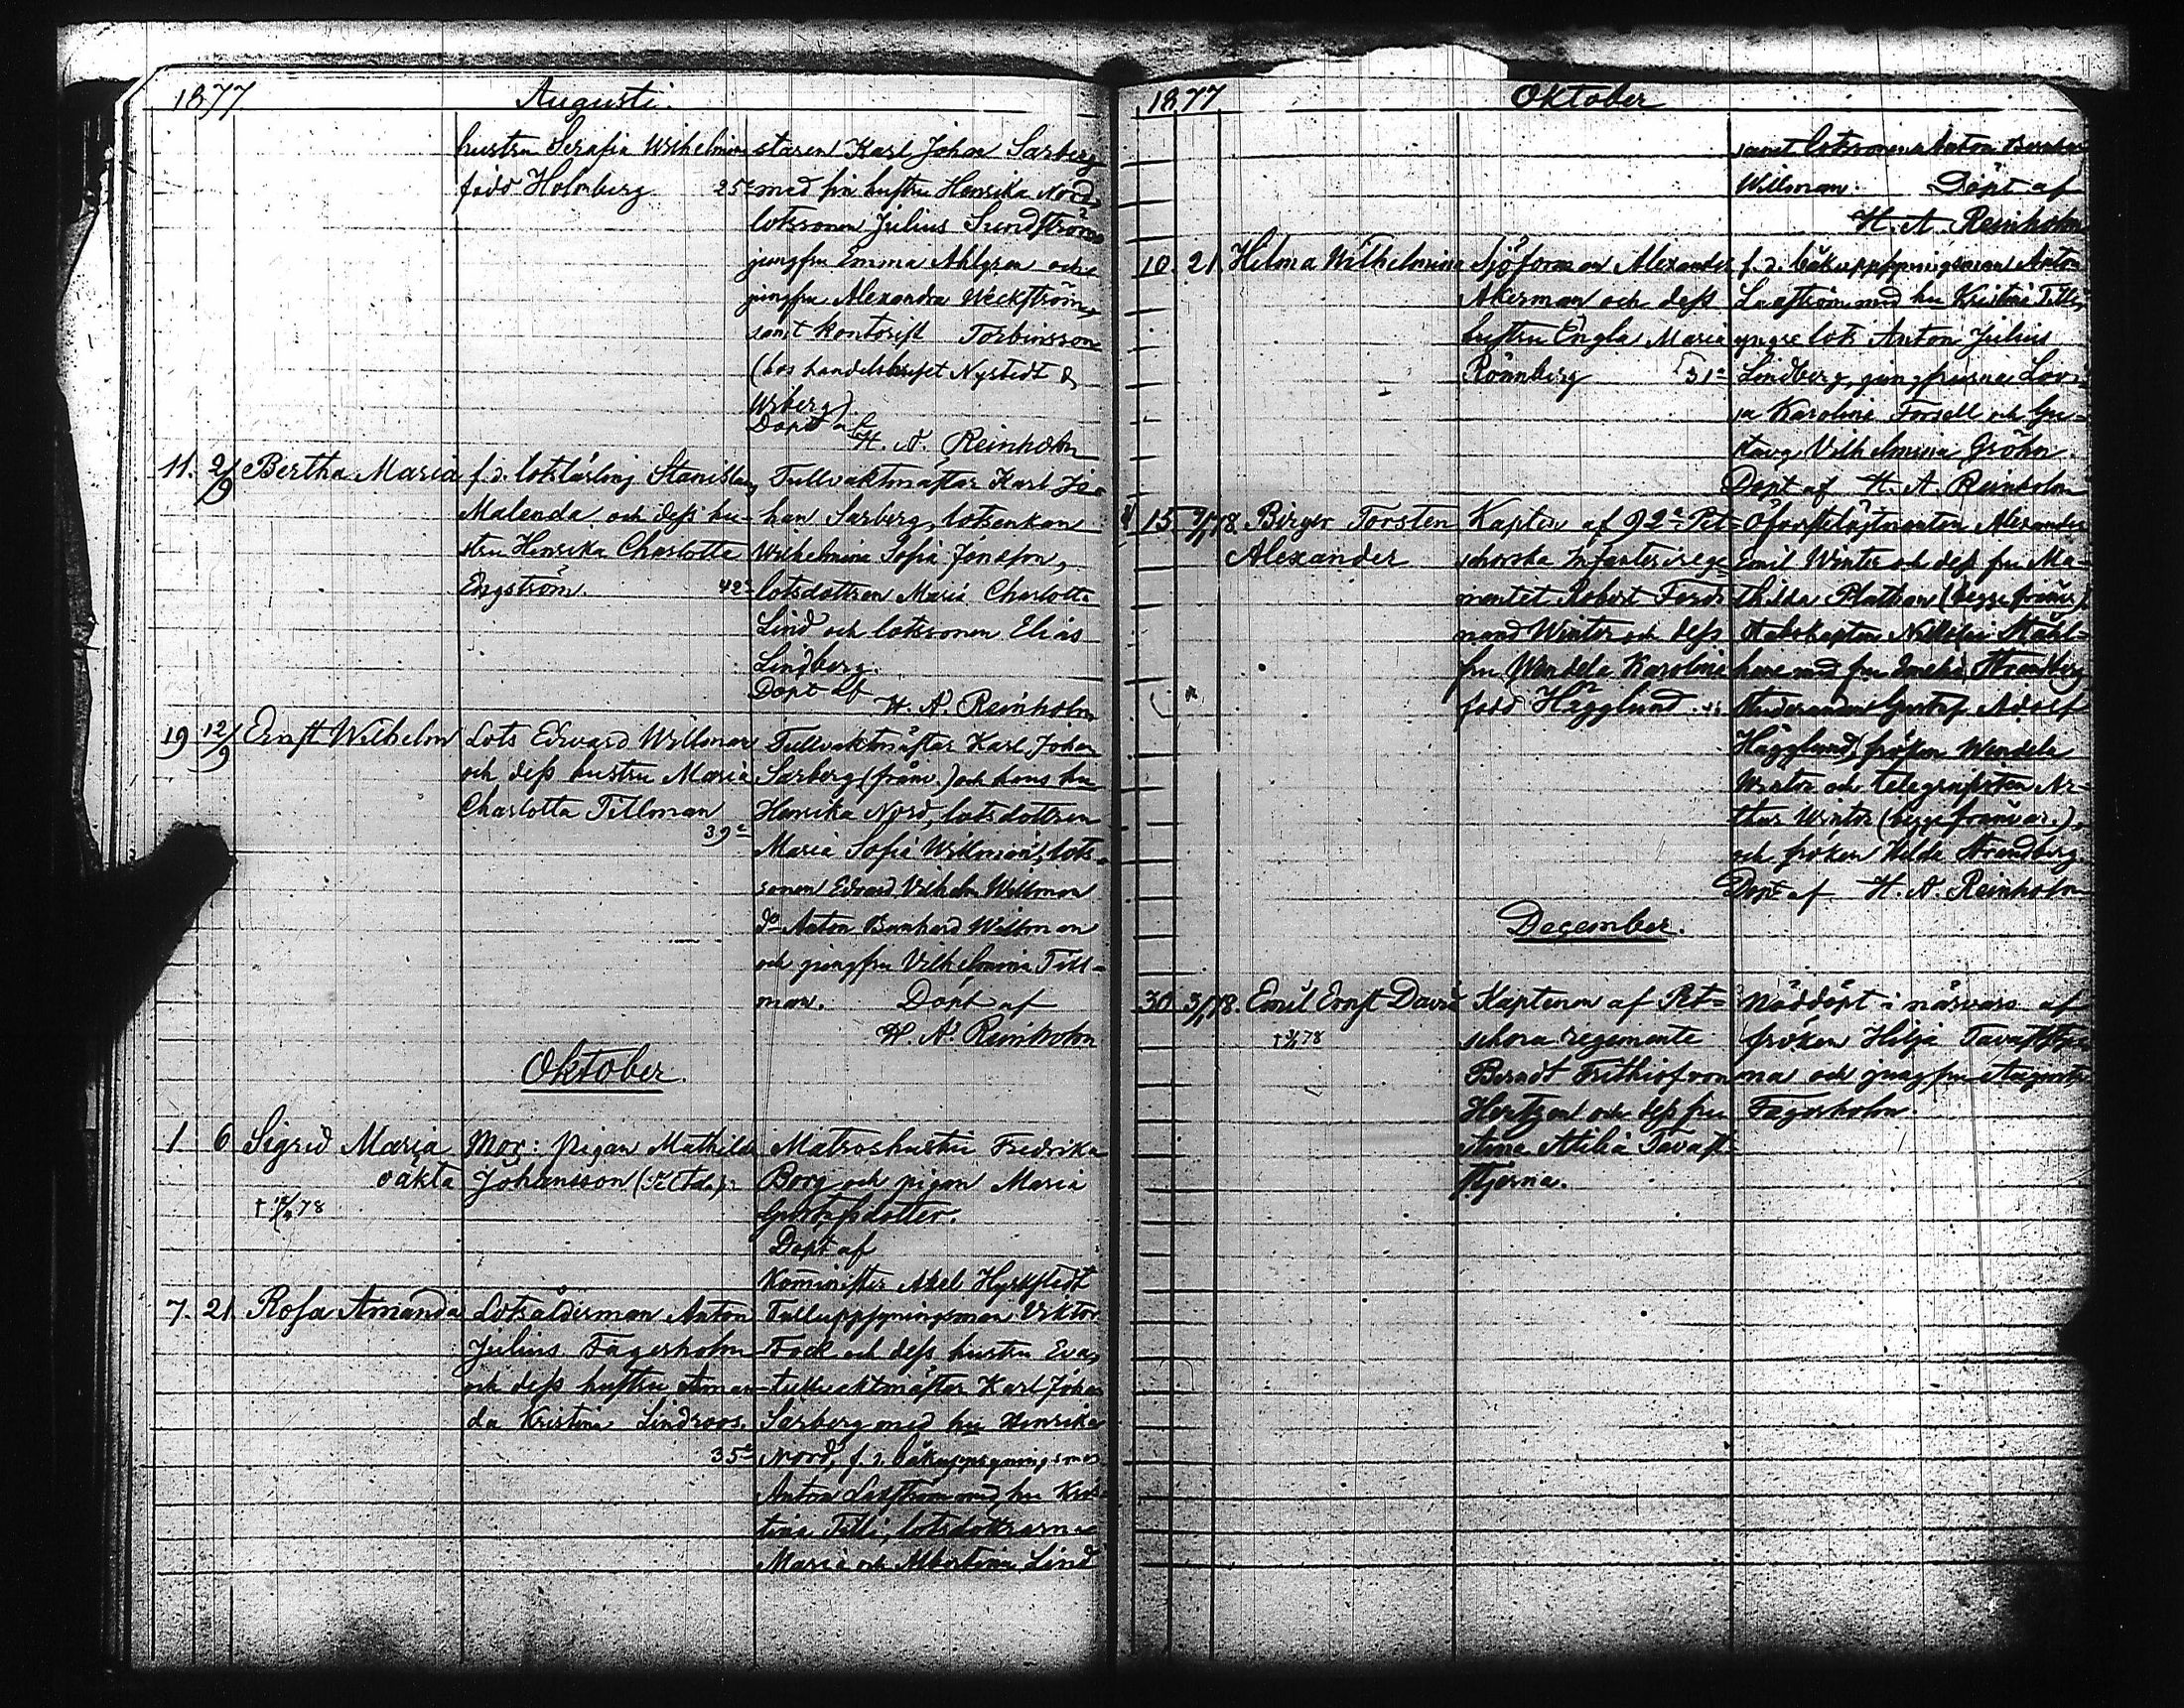 1877 Augusti.
hustru Serafia Wilhelmina
född Holmberg 25 a
staren Karl Johan Sarberg
med sin hustru Henrika Nord,
lotssonen Julius Sundström
jungfru Emma Ahlgren och
jungfru Alexandra Weckström,
samt kontorist Torbinsson
(hos handelshuset Nystedt &
Wiberg).
Döpt af
H. A. Reinholm
11. 2/9 Bertha Maria
f. d. lotslärling Stanislaus
Malenda och dess hu-
stru Henrika Charlotta
Engström. 42 a
Tullvaktmästar Karl Jo-
han Sarberg, lotsenkan
Wilhelmina Sofia Jonsson,
lotsdottren Maria Charlotta
Lind och lotssonen Elias
Lindberg.
Döpt af
H. A. Reinholm
19 12/9 Ernst Wilhelm
Lots Edvard Willman
och dess hustru Maria
Charlotta Tillman
39 a
Tullvaktmästar Karl Johan
Sarberg (frånv.) och hans hu
Henrika Nord, lotsdottren
Maria Sofia Willman, lots-
sonen Edvard Vilhelm Willman
do Anton Bernhard Willman
och jungfru Vilhelmina Till-
man. Döpt af
H. A. Reinholm
Oktober.
1 6 Sigrid Maria
oäkta
† 78
Mor: pigan Mathilda
Johansson
Matroshustru Fredrika
Borg och pigan Maria
Gustafsdotter.
Döpt af
Kominister Axel Hyrkstedt
7. 21 Rosa Amanda
Lotsålderman Anton
Julius Fagerholm
och dess hustru Aman-
da Kristina Lindroos.
35 a
Tulluppsyningsman Viktor
Fock och dess hustru Eva,
tullvaktmästar Karl Johan
Sarberg med hu Henrika
Nord, f. d. båkuppsyningsman
Anton Laström med hu Kris-
tina Tilli, lotsdöttrarna
Maria och Albertina Lind
1877 Oktober
samt lotssonen Anton Bernhard
Willman. Döpt af
H. A. Reinholm
10. 21 Hilma Wilhelmina
Sjöforman Alexander
Åkerman och dess
hustru Engla Maria
Rönnberg 31 a
f. d. båkuppsyningsman Anton
Laström med hu Kristina Tilli,
yngre lots Anton Julius
Lindberg, jungfrurna Lovi-
sa Karolina Forsell och Gu-
stava Vilhelmina Gröhn.
Döpt af H. A. Reinholm
15 9/1 78. Birger Torsten
Alexander
Kapten af 92 a Pet-
schorska Infanterirege-
mentet Robert Ferdi-
nand Winter och dess
fru Wendela Karolina
född Hägglund
Öfverstelöjtnanten Alexander
Emil Winter och dess fru Ma-
thilda Plathan (begge frånv.)
Stabskapten Nikolai Stål-
hane med fru Amelie Strandberg
Studeranden Gustaf Adolf
Hägglund, fröken Wendela
Winter och telegrafisten Ar-
thur Winter (begge frånvar.)
och fröken Hilda Strandberg.
Döpt af H. A. Reinholm
December.
30 3/1 78. Emil Ernst David
† 78
Kaptenen af Pet-
schora regemente
Berndt Frithiof von
Hertzen och dess fru
Aina Atilia Tavast-
stjerna.
Nöddöpt i närvaro af
fröken Hilja Tavaststjer-
na och jungfru Augusta
Fagerholm.